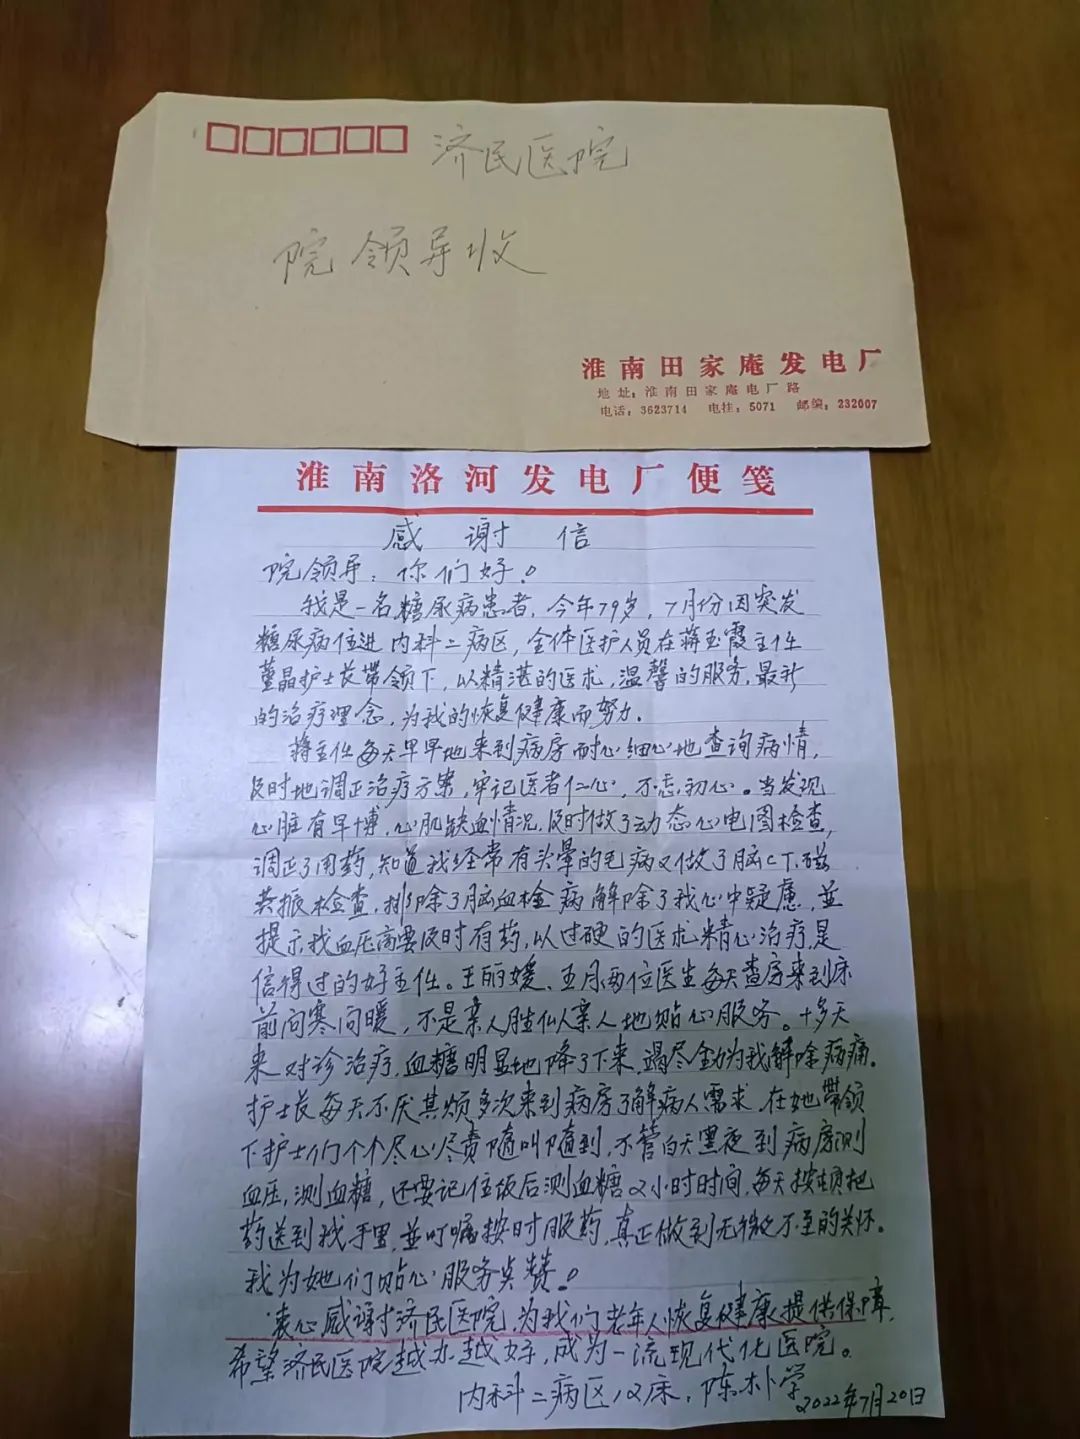 济民医院
院领导收
淮南田家庵发电厂
地址：淮南田家庵电厂路
电话：3623714 电挂：5071 邮编：232007
淮南洛河发电厂便笺
感谢信
院领导：你们好！
我是一名糖尿病患者，今年79岁，7月份因突发
糖尿病住进内科二病区，全体医护人员在蒋玉霞主任
董晶护士长带领下，以精湛的医术，温馨的服务，最新
的治疗理念，为我的恢复健康而努力．
蒋主任每天早早地来到病房耐心细心地查询病情，
及时地调正治疗方案，牢记医者仁心，不忘初心。当发现
心脏有早博，心肌缺血情况，及时做了动态心电图检查，
调正了用药，知道我经常有头晕的毛病又做了脑CT、磁
共振检查，排除了脑血栓病解除了我心中疑虑，並
提示我血压高要及时有药，以过硬的医术精心治疗，是
信得过的好主任。王丽媛、王月两位医生每天查房来到床
前问寒问暖，不是亲人胜似亲人地贴心服务。十多天
来对诊治疗，血糖明显地降了下来，竭尽全力为我解除病痛。
护士长每天不厌其烦多次来到病房了解病人需求，在她带领
下护士们个个尽心尽责随叫随到，不管白天黑夜到病房测
血压，测血糖，还要记住饭后测血糖2小时时间，每天按顿把
药送到我手里，並叮嘱按时服药，真正做到无微不至的关怀。
我为她们贴心服务点赞！
衷心感谢济民医院，为我们老年人恢复健康提供保障，
希望济民医院越办越好，成为一流现代化医院。
内科二病区12床，陈朴学
2022年7月20日